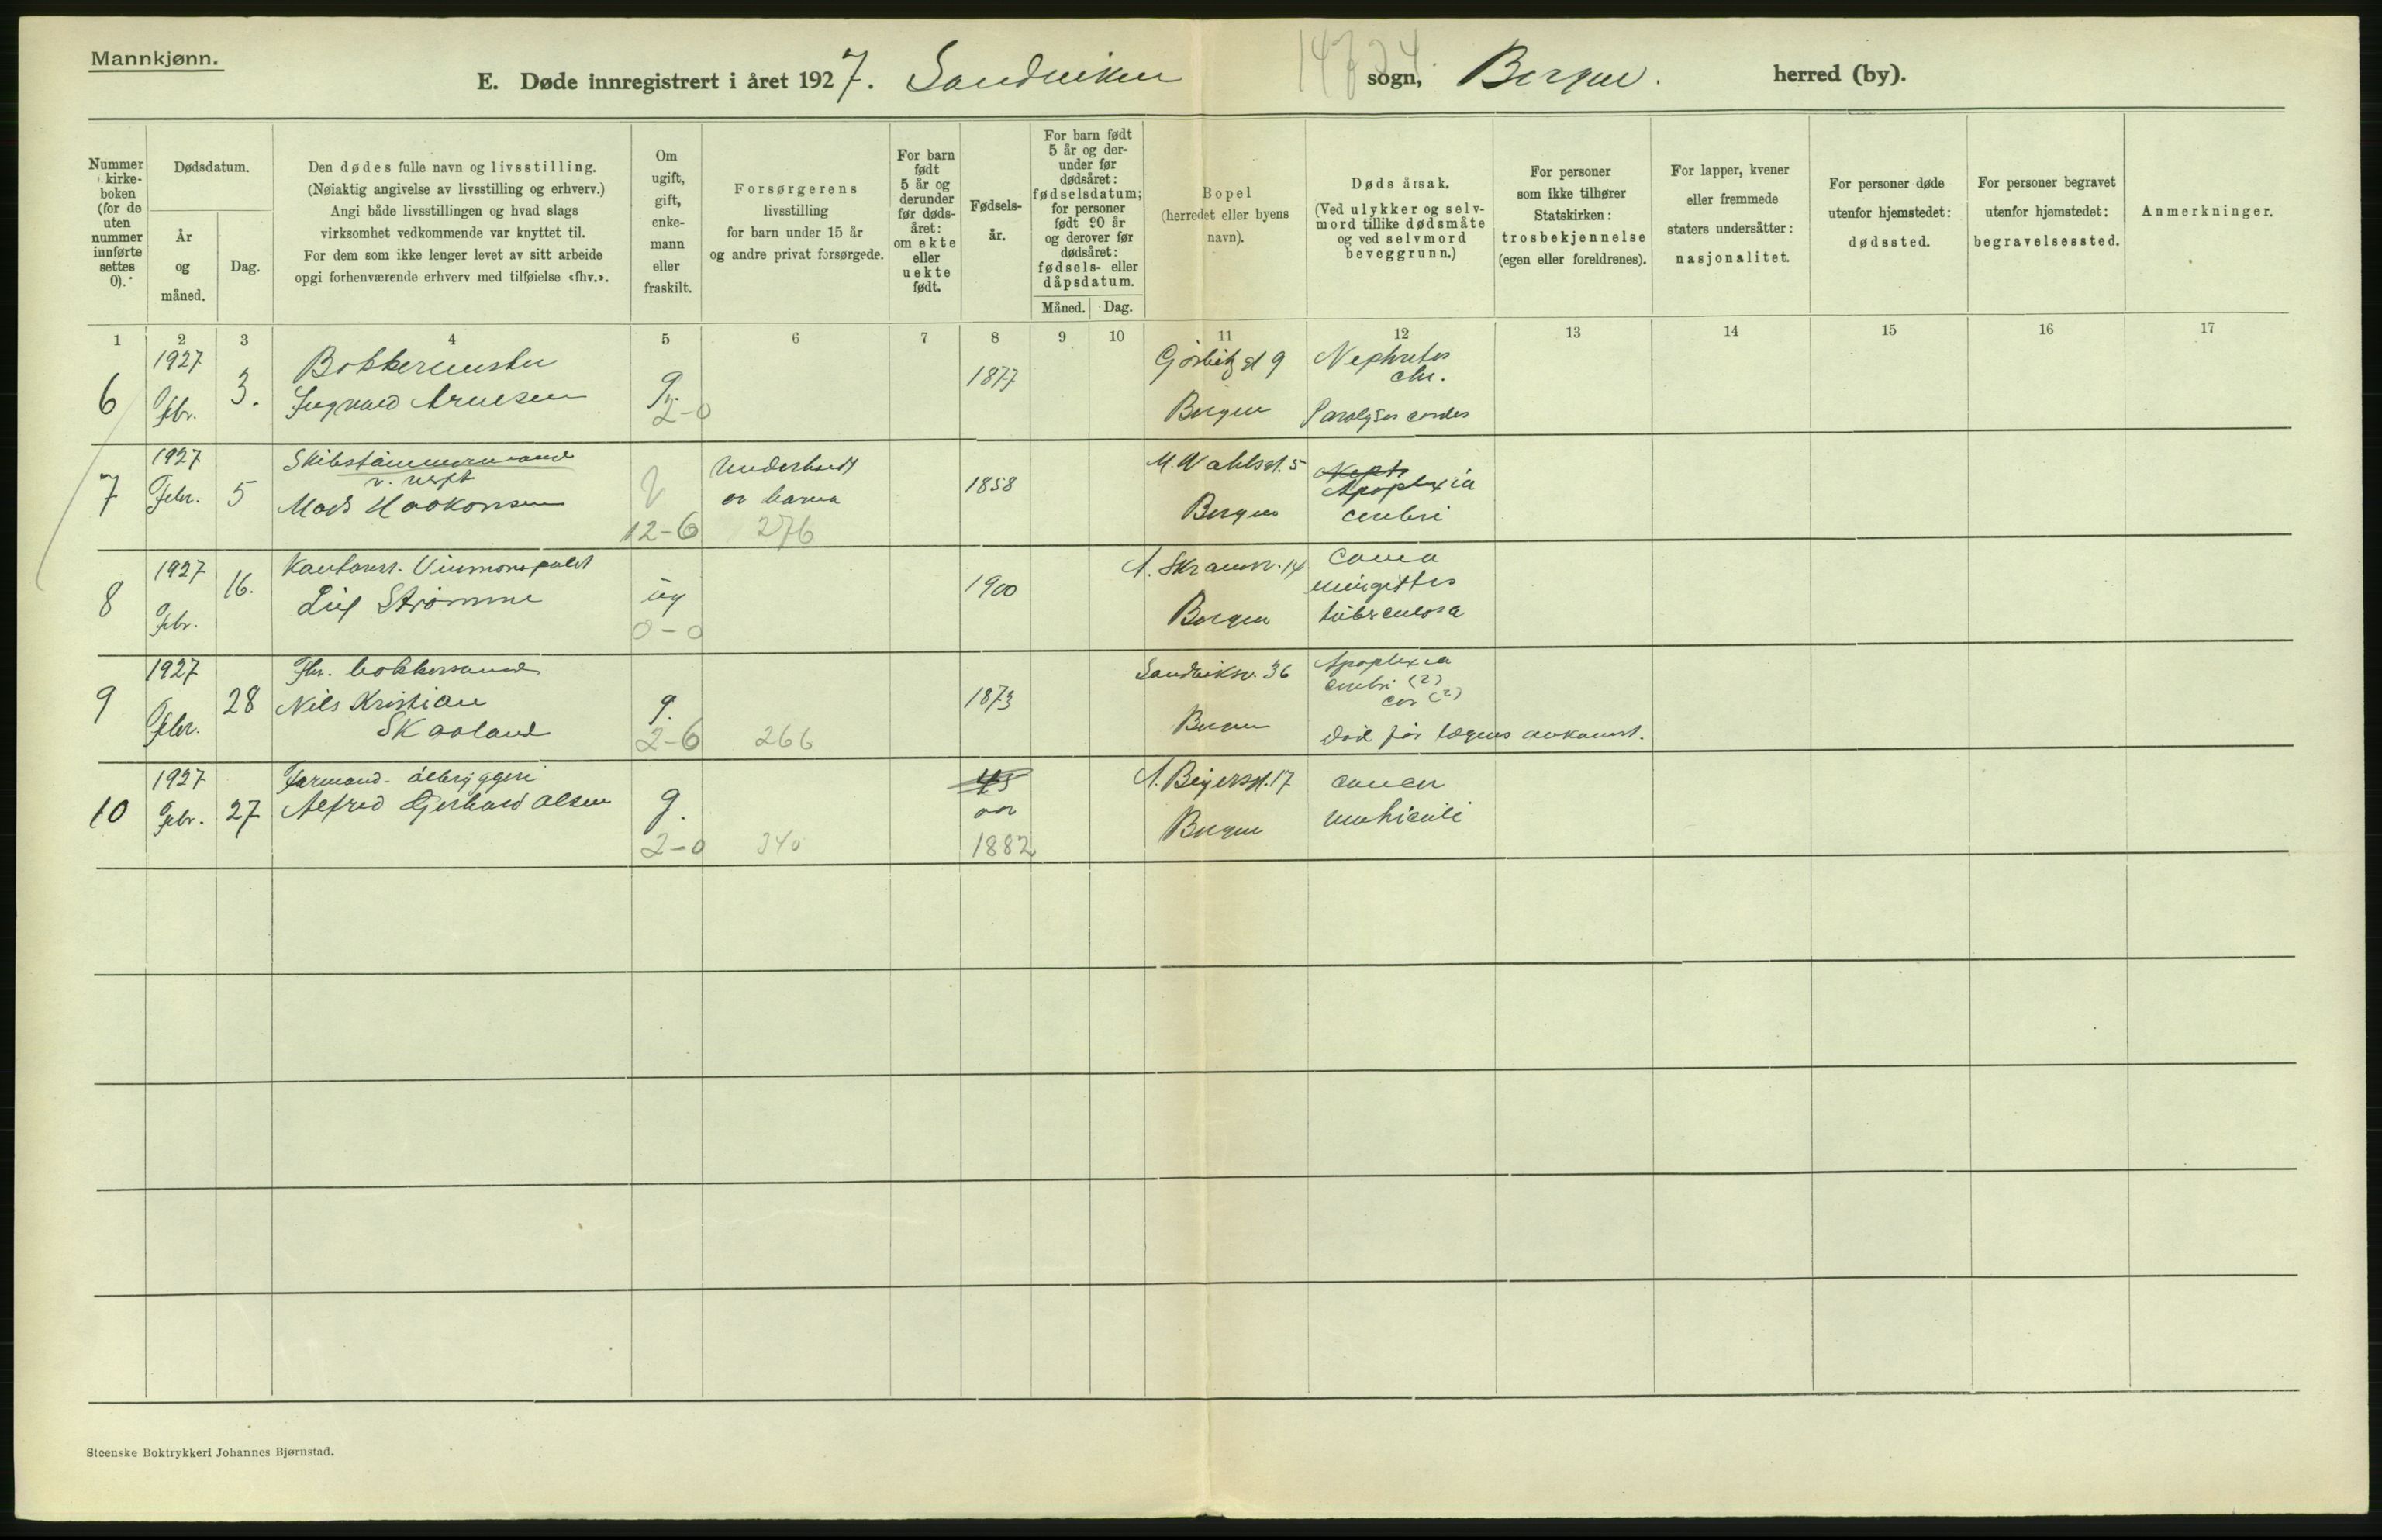 Mannkjønn.
E. Døde innregistrert i året 1927. Sandviken sogn, Bergen. herred (by).
14734
Nummer i kirke-boken (for de uten nummer innførte settes 0).
Dødsdatum.
År og måned.
Dag.
Den dødes fulle navn og livsstilling.
(Nøiaktig angivelse av livsstilling og erhverv.)
Angi både livsstillingen og hvad slags
virksomhet vedkommende var knyttet til.
For dem som ikke lenger levet av sitt arbeide
opgi forhenværende erhverv med tilføielse «fhv.».
Om ugift, gift, enke-mann eller fraskilt.
Forsørgerens
livsstilling
for barn under 15 år
og andre privat forsørgede.
For barn født 5 år og derunder før døds-året: om ekte eller uekte født.
Fødsels-år.
For barn født 5 år og der-under før dødsåret: fødselsdatum; for personer født 90 år og derover før dødsåret: fødsels- eller dåpsdatum.
Måned. Dag.
Bopel
(herredet eller byens
navn).
Døds årsak.
(Ved ulykker og selv-
mord tillike dødsmåte
og ved selvmord
beveggrunn.)
For personer
som ikke tilhører
Statskirken:
trosbekjennelse
(egen eller foreldrenes).
For lapper, kvener
eller fremmede
staters undersåtter:
nasjonalitet.
For personer døde
utenfor hjemstedet:
dødssted.
For personer begravet
utenfor hjemstedet:
begravelsessted.
Anmerkninger.
1 2 3 4 5 6 7 8 9 10 11 12 13 14 15 16 17
6 1927 Febr. 3. Bøkkermester
Ingvald Arnesen g. 2-0 1877 Gørbitz gt 9
Bergen Nephrites
chr.
Paralysis cordis
7 1927 Febr. 5 Skibstømmermand
v. verft
Mads Haakonsen 12-6 Underholdt
av barna
276 1858 M. Wahlsgt. 5
Bergen Neph
Apoplexia
cerebri
8 1927 Febr. 16. Kontorist. Vinmonopolet
Leif Strømme ug 0-0 1900 A. Skramsv. 14
Bergen Coma
meningittis
tuberculosa
9 1927 Febr. 28 Fhv. bøkkersvend
Nils Kristian
Skaaland g. 2-6 266 1873 Sandviksv. 36
Bergen Apoplexia
cerebri (?)
cor (?)
død før lægens ankomst.
10 1927 Febr. 27 Formand - ølbryggeri
Alfred Gerhard Olsen g. 2-0 340 45
aar
1882 A. Beyersgt. 17
Bergen Cancer
ventriculi
Steenske Boktrykkeri Johannes Bjørnstad.